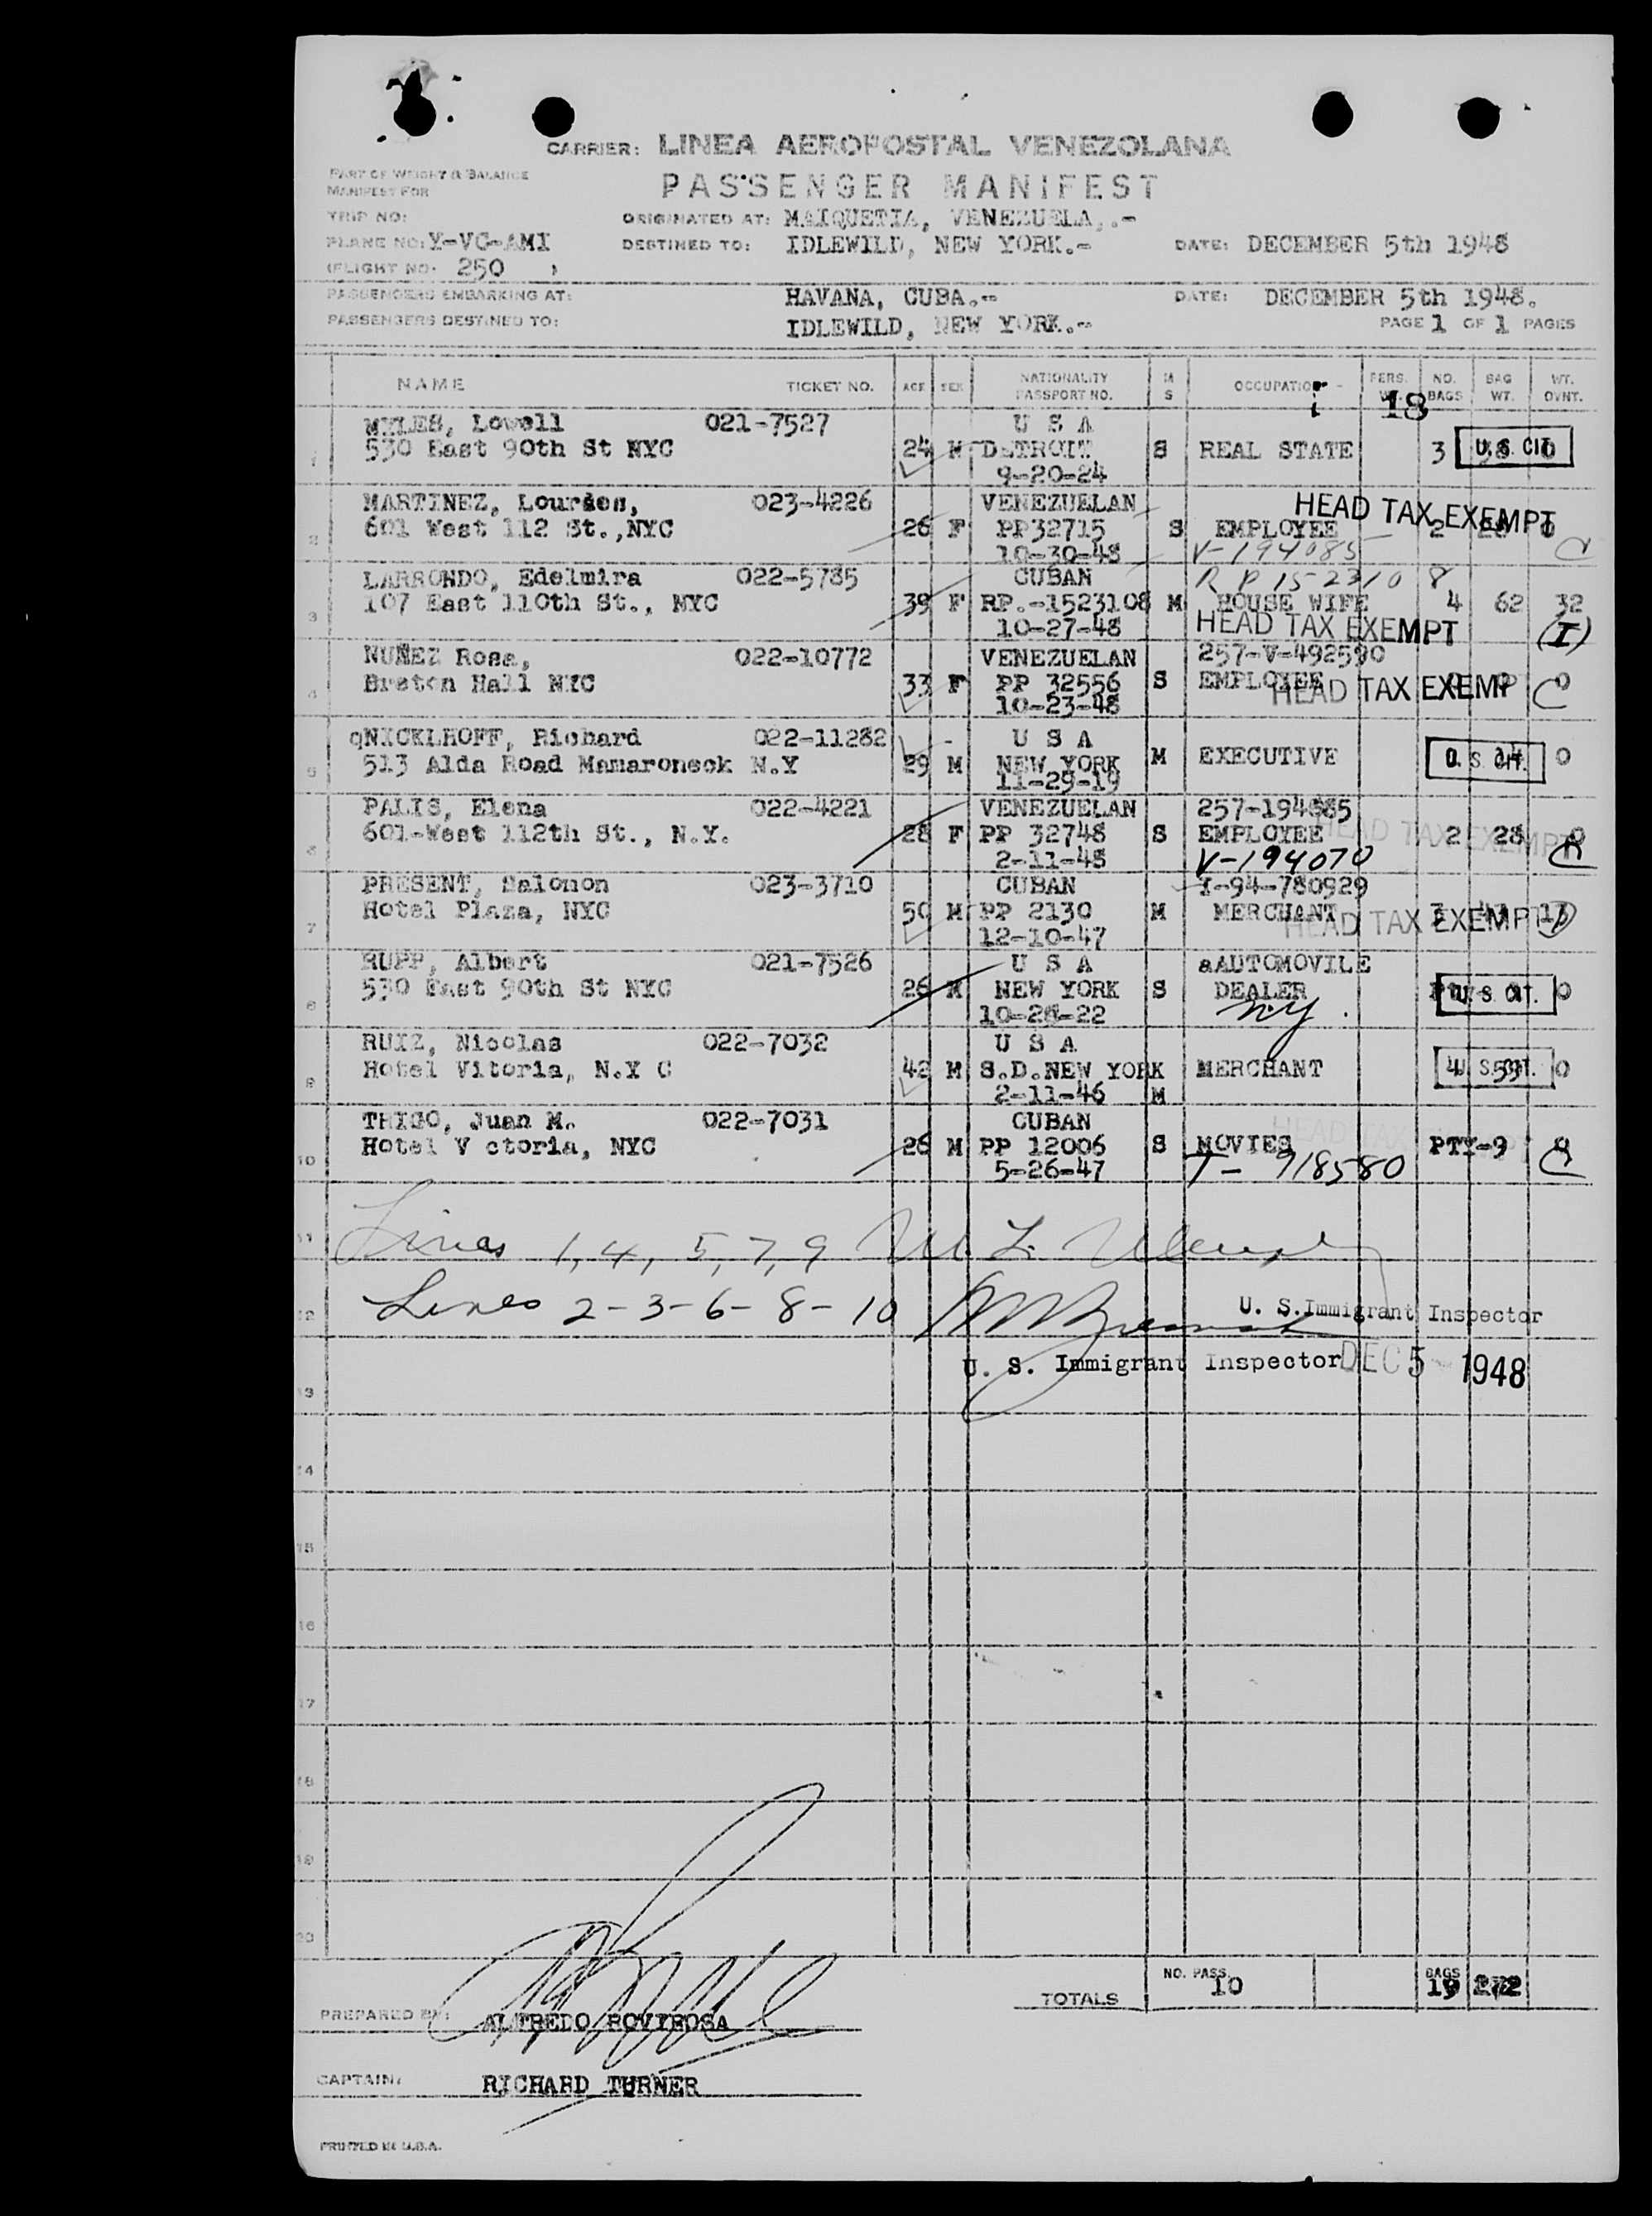 CARRIER: LINEA AEROPOSTAL VENEZOLANA
PART OF WEIGHT & BALANCE
MANIFEST FOR
PASSENGER MANIFEST
TRIP NO:
ORIGINATED AT: MAIQUETIA, VENEZUELA,.-
PLANE NO: Y-VC-AMI
DESTINED TO: IDLEWILD, NEW YORK.-
DATE: DECEMBER 5th 1948
(FLIGHT NO. 250 )
PASSENGERS EMBARKING AT: HAVANA, CUBA.-
DATE: DECEMBER 5th 1948.
PASSENGERS DESTINED TO: IDLEWILD, NEW YORK.-
PAGE 1 OF 1 PAGES
NAME TICKET NO. AGE SEX NATIONALITY PASSPORT NO. M S OCCUPATION PERS. WT. NO. BAGS BAG WT. WT. OVNT.
i 18
MYLES, Lowell 021-7527 U S A
1 530 East 90th St NYC 24 M DETROIT S REAL STATE 3 U.S. CIT. 0
9-20-24
MARTINEZ, Lourdes, 023-4226 VENEZUELAN HEAD TAX EXEMPT
2 601 West 112 St.,NYC 26 F PP32715 S EMPLOYEE 2 28 0
10-30-48 V-194085 C
LARRONDO, Edelmira 022-5785 CUBAN R P 1523108
3 107 East 110th St., NYC 39 F RP.-1523108 M HOUSE WIFE 4 62 32
10-27-48 HEAD TAX EXEMPT (I)
NUÑEZ Rosa, 022-10772 VENEZUELAN 257-V-492590
4 Breton Hall NYC 33 F PP 32556 S EMPLOYEE HEAD TAX EXEMP 0 C
10-23-48
qNICKLHOFF, Richard 022-11282 U S A
5 513 Alda Road Mamaroneck N.Y 29 M NEW YORK M EXECUTIVE U. S. CIT. 0
11-29-19
PALIS, Elena 022-4221 VENEZUELAN 257-194585
6 601-West 112th St., N.Y. 28 F PP 32748 S EMPLOYEE HEAD TAX EXEMPT 2 28 0
2-11-48 V-194070
PRESENT, Salomon 023-3710 CUBAN I-94-780929
7 Hotel Plaza, NYC 50 M PP 2130 M MERCHANT HEAD TAX EXEMPT
12-10-47
RUPP, Albert 021-7526 U S A aAUTOMOVILE
8 530 East 90th St NYC 26 M NEW YORK S DEALER U. S. CIT. 0
10-28-22 NY.
RUIZ, Nicolas 022-7032 U S A
9 Hotel Vitoria, N.Y C 42 M S.D.NEW YORK MERCHANT 4 U. S. CIT. 59 0
2-11-46 M
TRIGO, Juan M. 022-7031 CUBAN HEAD TAX
10 Hotel V ctoria, NYC 26 M PP 12006 S MOVIES PTY-9 0
5-26-47 T- 718580 C
11 Lines 1, 4, 5, 7, 9
12 Lines 2-3-6-8-10
U. S.Immigrant Inspector
U. S. Immigrant Inspector DEC 5 1948
13
14
15
16
17
18
19
20
TOTALS NO. PASS. 10 BAGS 19 272
PREPARED BY: ALFREDO ROVIROSA
CAPTAIN: RICHARD TURNER
PRINTED IN U.S.A.